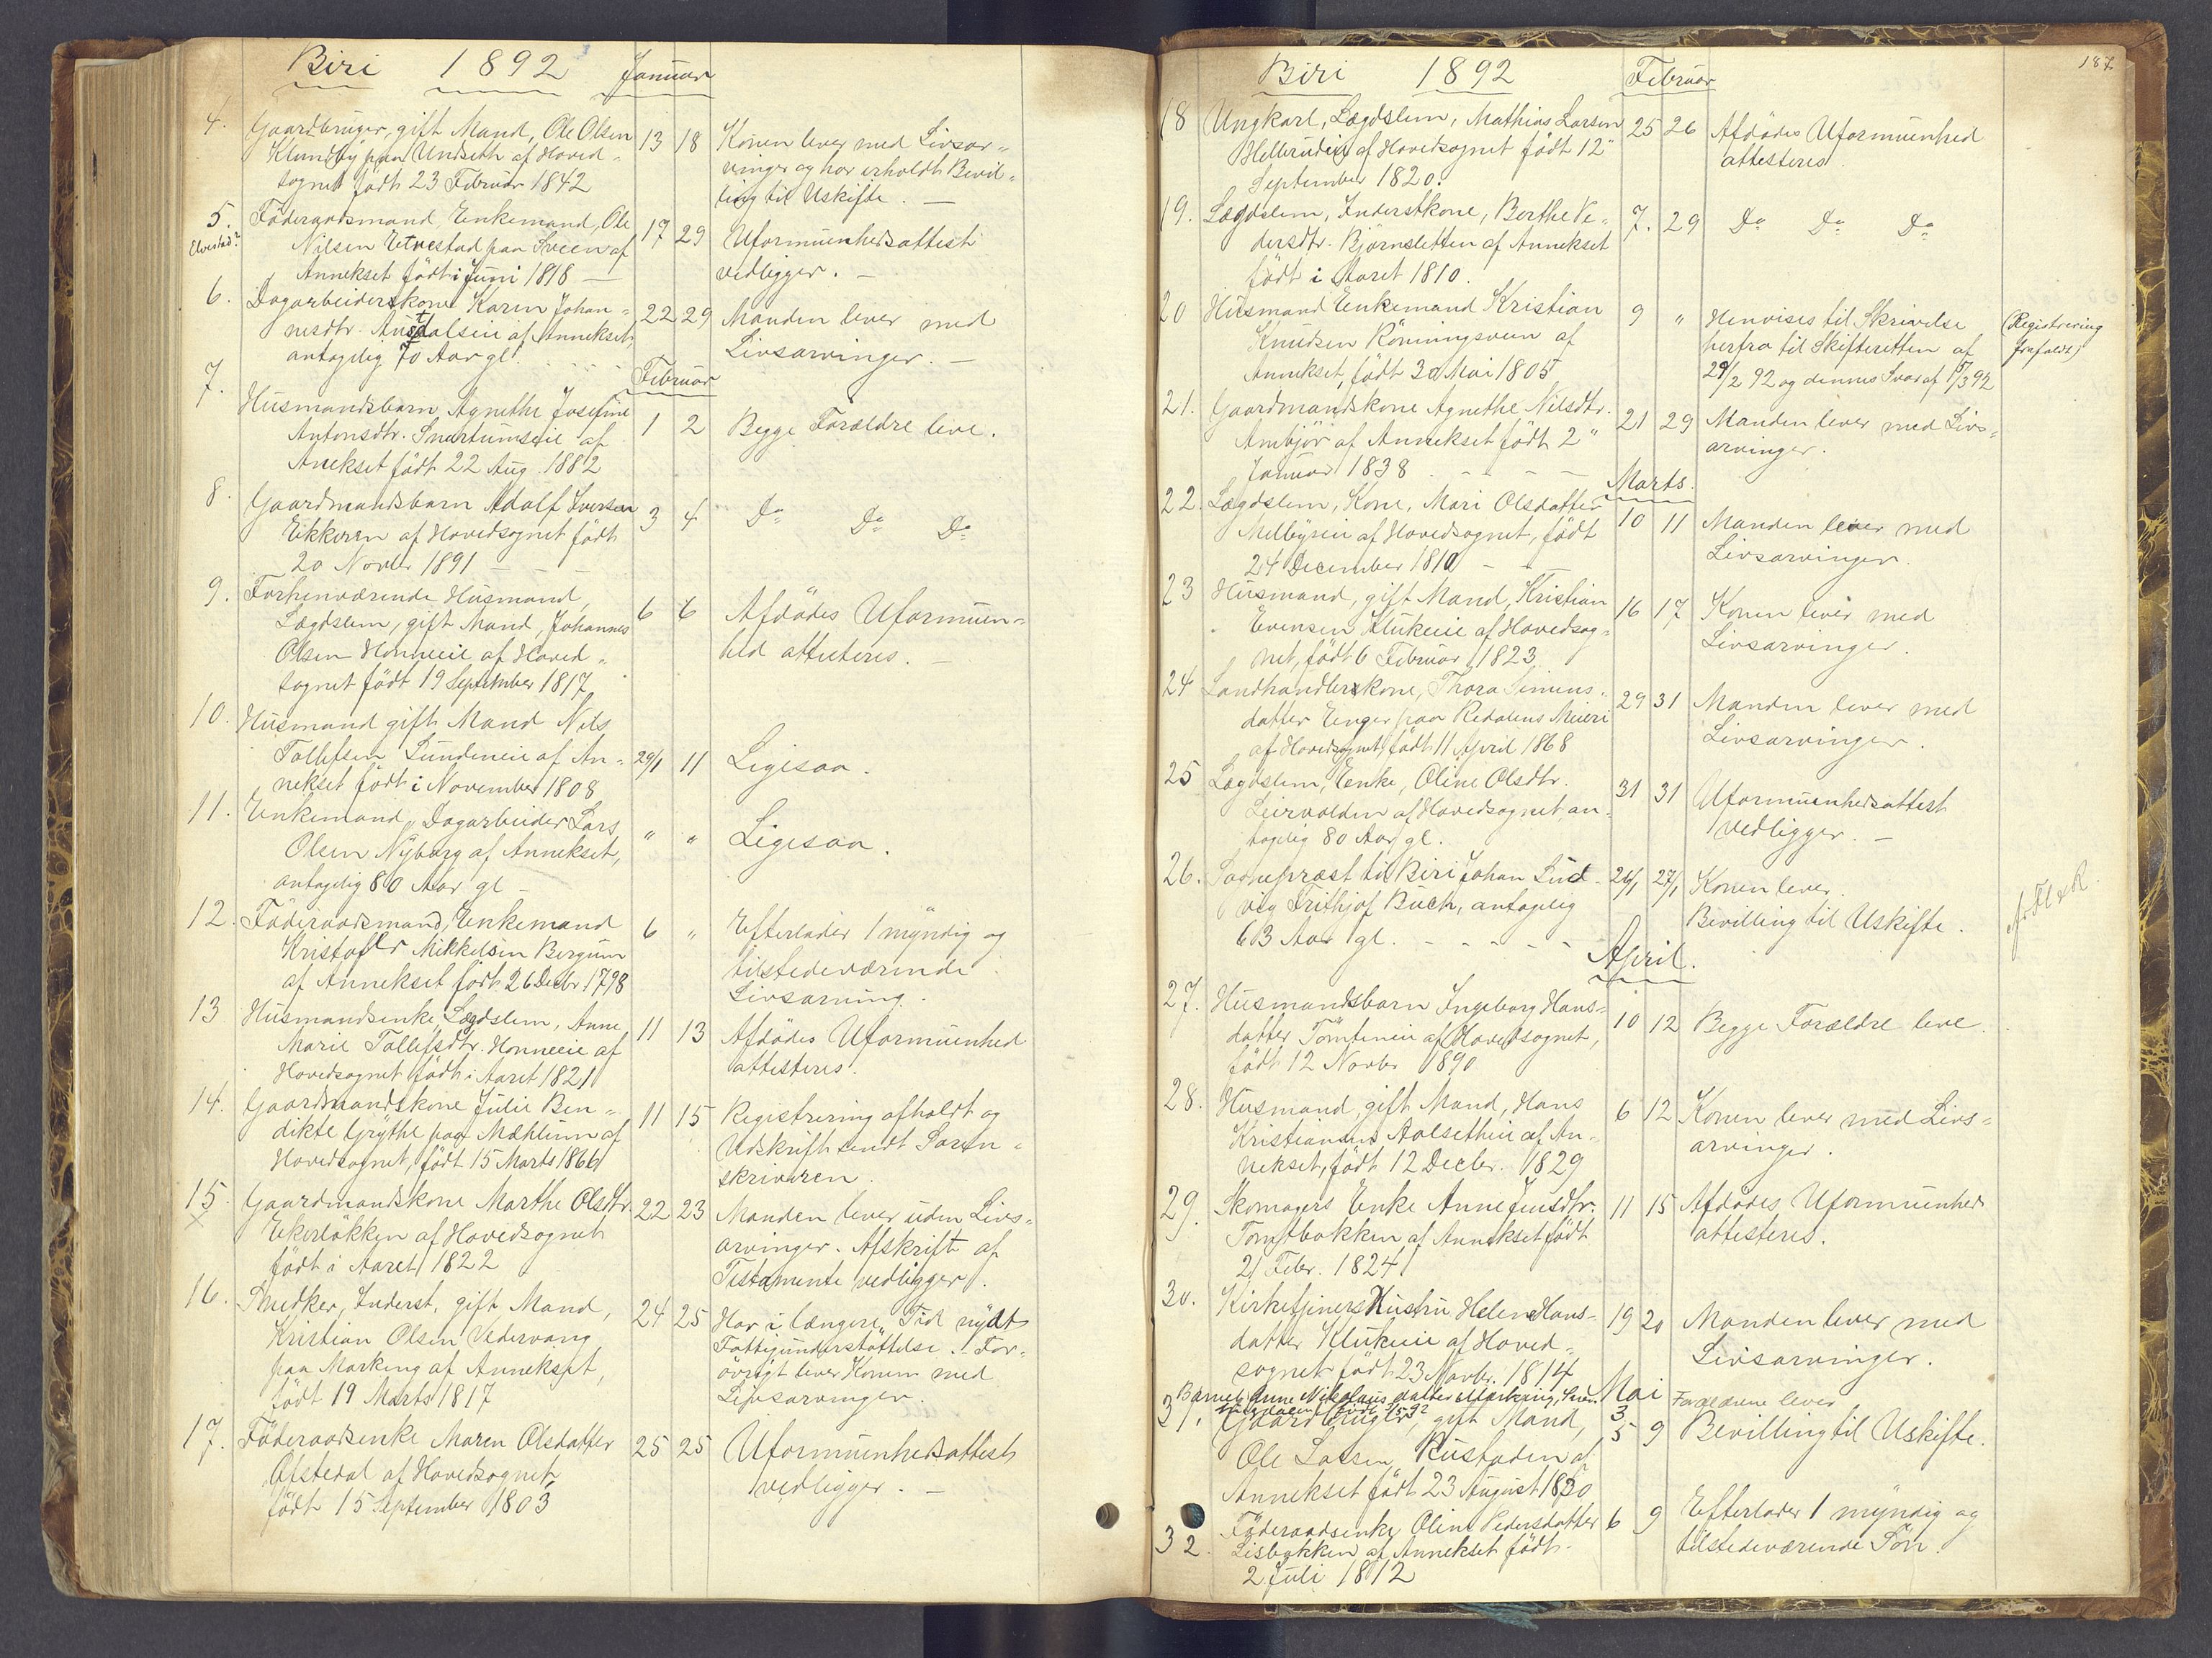 Biri 1892 Januar
4. Gaardbruger, gift Mand, Ole Olsen 13 18 Konen lever med Livsar-
Klundby paa Undseth af Hoved- vinger og har erholdt Bevil-
sognet født 23 Februar 1842 ling til Uskifte. —
5. Föderaadsmand Enkemand, Ole 17 29 Uformuenhedsattest
Elvestad? Nilsen Elvestad paa Sveen af vedligger. —
Annekset født i Juni 1818 —
6. Dagarbeiderskone Karen Johan- 22 29 Manden lever med
nesdtr. af Annekset, Livsarvinger. —
antagelig 70 Aar gl.
Februar
7. Husmandsbarn Agnethe Josefine 1 2 Begge Forældre leve.
Antonsdtr. Snertumseie af
Anekset født 22 Aug. 1882
8. Gaardmandsbarn Adolf Iversen 3 4 Do Do Do
Eikkeren af Hovedsognet født
20 Novbr 1891 — — —
9. Forhenværende Husmand, 6 6 Afdödes Uformuen-
Lægdslem, gift Mand, Johannes hed attesteres. —
Olsen Honneeie af Hoved-
sognet født 19 September 1817
10. Husmand gift Mand Nils 29/1 11 Ligesaa.
Tollefsen Sundeneie af An-
nekset født i November 1808
11. Enkemand, Dagarbeider Lars " " Ligesaa.
Olsen Nyborg af Annekset,
antagelig 80 Aar gl —
12. Föderaadsmand, Enkemand 6 " Efterlader 1 myndig og
Kristoffer Mikkelsen Bergum tilstedeværende
af Annekset født 26 Decbr 1798 Livsarving.
13. Husmandsenke, Lægdslem, Anne 11 13 Afdödes Uformuenhed
Marie Tollefsdtr. Honneeie af attesteres.
Hovedsognet født i Aaret 1821
14. Gaardmandskone Julie Ben- 11 15 Registrering afholdt og
dikte Grythe paa Mæhlum af Udskrift sendt Soren-
Hovedsognet, født 15 Marts 1866 skriveren.
15. Gaardmandskone Marthe Olsdtr. 22 23 Manden lever uden Livs-
x Ekerløkken af Hovedsognet arvinger. Afskrift af
født i Aaret 1822 Testamente vedligger.
16. Snedker, Inderst, gift Mand, 24 25 Har i længere Tid nydt
Kristian Olsen Vedervang Fattigunderstöttelse. For-
paa Markeng af Annekset, övrigt lever Konen med
født 19 Marts 1817 Livsarvinger.
17. Föderaadsenke Maren Olsdatter 25 25 Uformuenhedsattest
Ofstedal af Hovedsognet, vedligger. —
født 15 September 1803
187.
Biri 1892 Februar
18 Ungkarl, Lægdslem, Mathias Larsen 25 26 Afdödes Uformuenhed
Hellerudeie af Hovedsognet født 12" attesteres.
September 1820.
19. Lægdslem, Inderstkone, Berthe Pe- 7. 29 Do Do Do
dersdtr. Björnsletten af Annekset
født i Aaret 1810.
20 Husmand Enkemand Kristian 9 " Henvises til Skrivelse (Registrering
Knudsen Rönningsveen af herfra til Skifteretten af frafaldt)
Annekset, født 30 Mai 1805 29/2 92 og dennes Svar af 1/3 92
21. Gaardmandskone Agnethe Nilsdtr. 21 29 Manden lever med Livs-
Ambjör af Annekset født 2" arvinger.
Januar 1838 — — —
Marts.
22. Lægdslem, Kone, Mari Olsdatter 10 11 Manden lever med
Melbyseie af Hovedsognet, født Livsarvinger.
24 December 1810 — —
23 Husmand, gift Mand, Kristian 16 17 Konen lever med
Evensen Klukeeie af Hovedsog- Livsarvinger.
net, født 6 Februar 1823.
24 Landhandlerskone, Thora Simens- 29 31 Manden lever med
datter Enger paa Redalens Meieri Livsarvinger.
af Hovedsognet, født 11 April 1868
25 Lægdslem, Enke, Oline Olsdtr. 31 31 Uformuenhedsattest
Leirvolden af Hovedsognet, an- vedligger. —
tagelig 80 Aar gl.
26. Sogneprest til Biri Johan Lud- 26/1 27/1 Konen lever.
vig Frithjof Buch, antagelig Bevilling til Uskifte.
63 Aar gl. — — — — —
April.
27. Husmandsbarn Ingeborg Hans- 10 12 Begge Forældre leve.
datter Tömteneie af Hovedsognet,
født 12 Novbr 1890
28. Husmand, gift Mand, Hans 6 12 Konen lever med Livs-
Kristiansen Aalsetheie af An- arvinger.
nekset, født 12 Decbr. 1829
29. Skomagers Enke Anne Jensdtr. 11 15 Afdödes Uformuenhed
Tomtbakken af Annekset født attesteres.
21 Febr. 1824
30. Kirketjeners Hustru Helene Hans- 19 20 Manden lever med
datter Klukeeie af Hoved- Livsarvinger.
sognet født 23 Novbr. 1814
Mai
Barnet Anne Nikolaus datter Markeng, 3 Forældrene lever
31. Gaardbruger, gift Mand, 5 9 Bevilling til Uskifte.
Ole Larsen Rustaden af
Annekset født 23 August 1830
32. Föderaadsenke Oline Pedersdatter 6 9 Efterlader 1 myndig og
Lisbakken af Annekset født tilstedeværende Sön.
2 Juli 1812